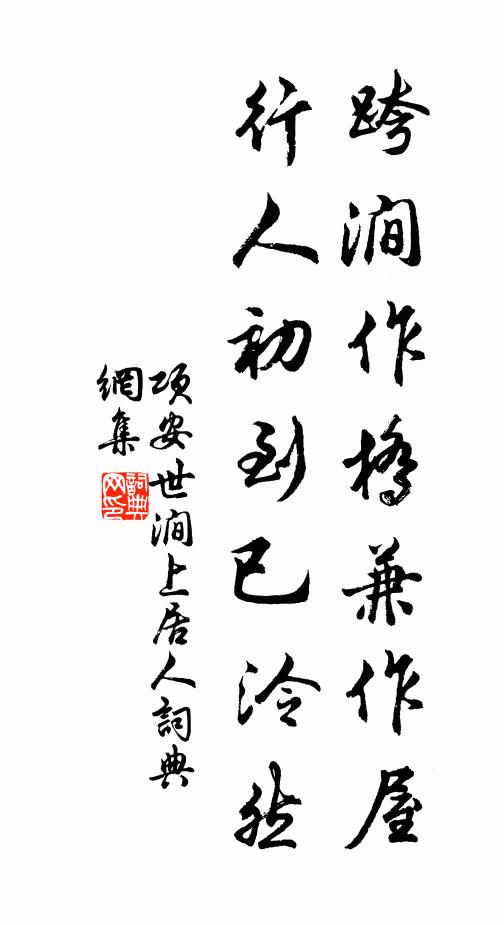 跨澗作橋兼作屋
行人初到已泠然
項安世澗上居人詞典
網集
詞典
网印